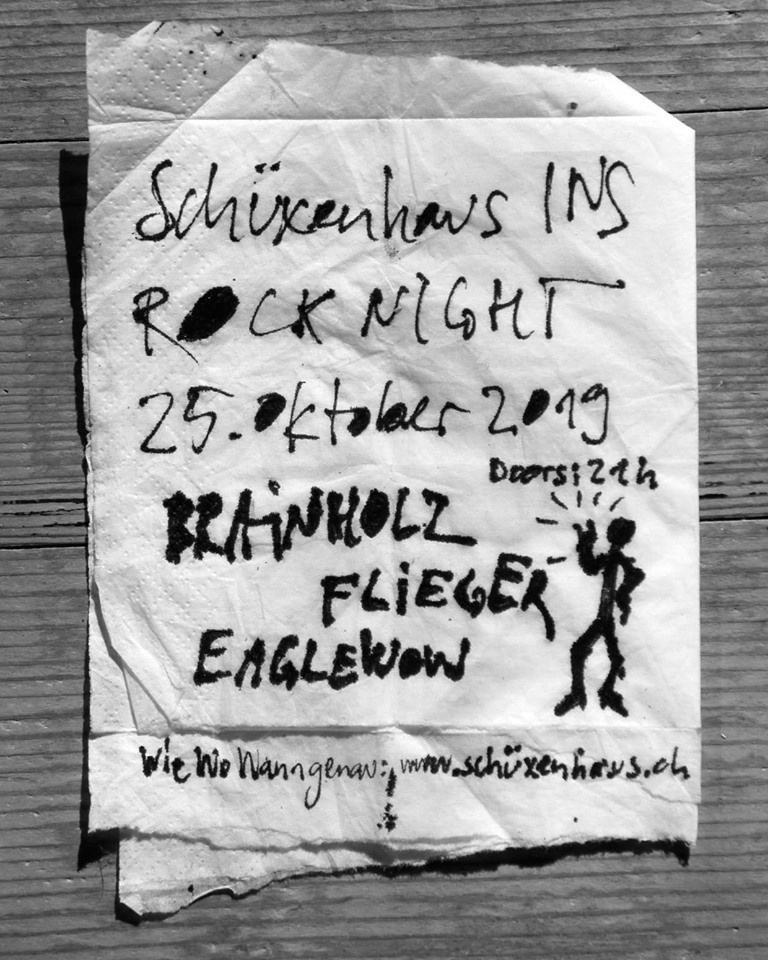 Schüxenhaus INS
ROCK NIGHT
25. Oktober 2019
Doors: 21h
BRAINHOLZ
FLiEGER
EAGLEWOW
Wie Wo Wann genau: www.schüxenhaus.ch